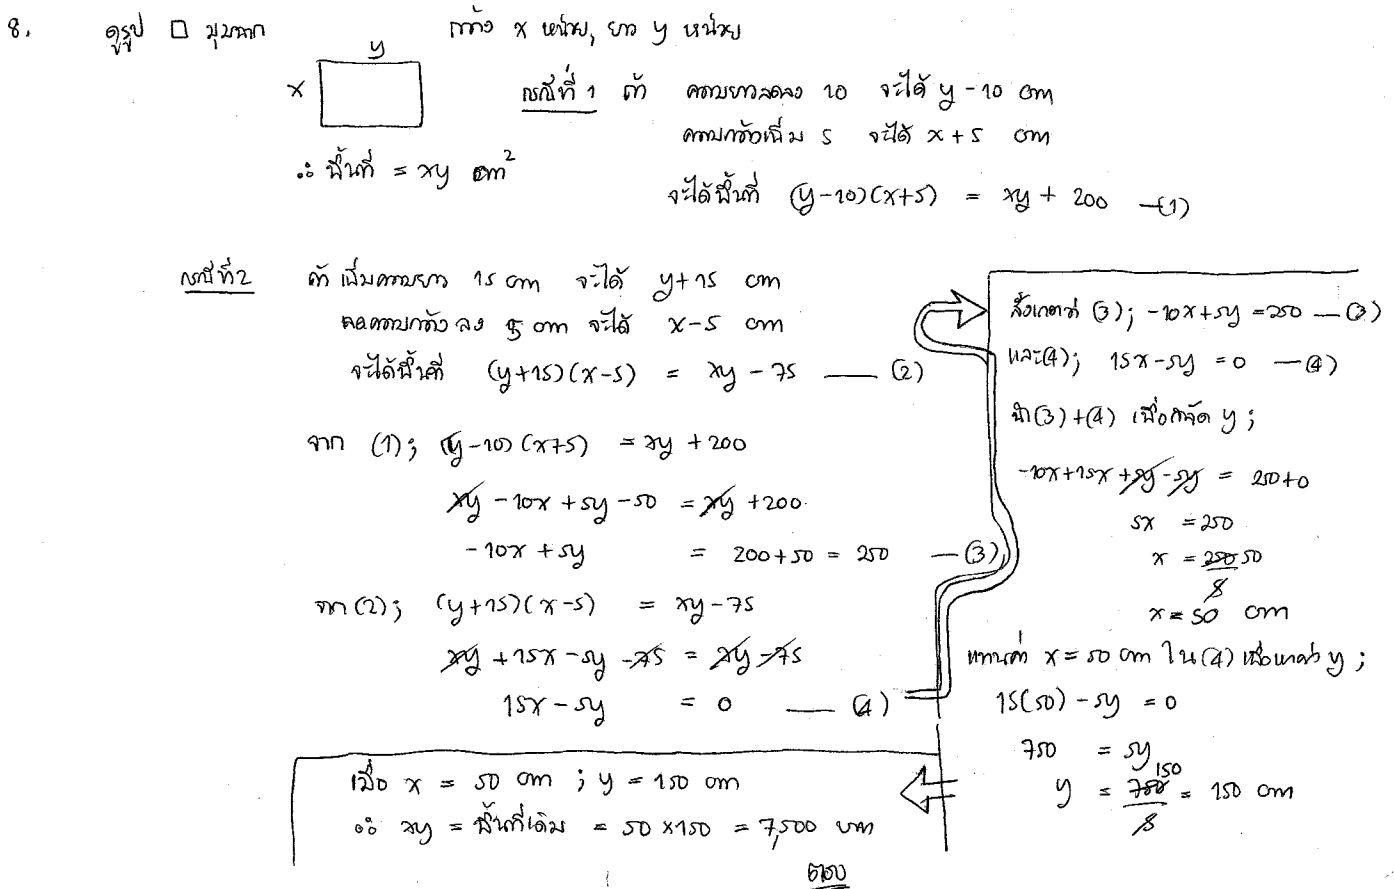 8. ดูรูป □ มุมฉาก กว้าง x หน่วย, ยาว y หน่วย
y
x
กรณีที่ 1 ถ้า ความยาวลดลง 10 จะได้ y-10 cm
ความกว้างเพิ่ม 5 จะได้ x+5 cm
∴ พื้นที่ = xy cm²
จะได้พื้นที่ (y-10)(x+5) = xy + 200 —(1)
กรณีที่2 ถ้า เพิ่มความยาว 15 cm จะได้ y+15 cm
ลดความกว้าง ลง 5 cm จะได้ x-5 cm
จะได้พื้นที่ (y+15)(x-5) = xy - 75 —— (2)
จาก (1); (y-10)(x+5) = xy +200
xy - 10x + 5y - 50 = xy +200
-10x + 5y = 200+50 = 250 —(3)
จาก (2); (y+15)(x-5) = xy-75
xy +15x-5y -75 = xy-75
15x-5y = 0 —— (4)
สังเกตว่า (3); -10x+5y = 250 —(3)
และ(4); 15x-5y = 0 —(4)
นำ(3)+(4) เพื่อกำจัด y ;
-10x+15x+5y-5y = 250+0
5x = 250
x = 250 50
5
x = 50 cm
แทนค่า x = 50 cm ใน (4) เพื่อหาค่า y ;
15(50) - 5y = 0
750 = 5y
150
y = 750 = 150 cm
5
เมื่อ x = 50 cm ; y = 150 cm
∴ xy = พื้นที่เดิม = 50 x150 = 7,500
ตอบ